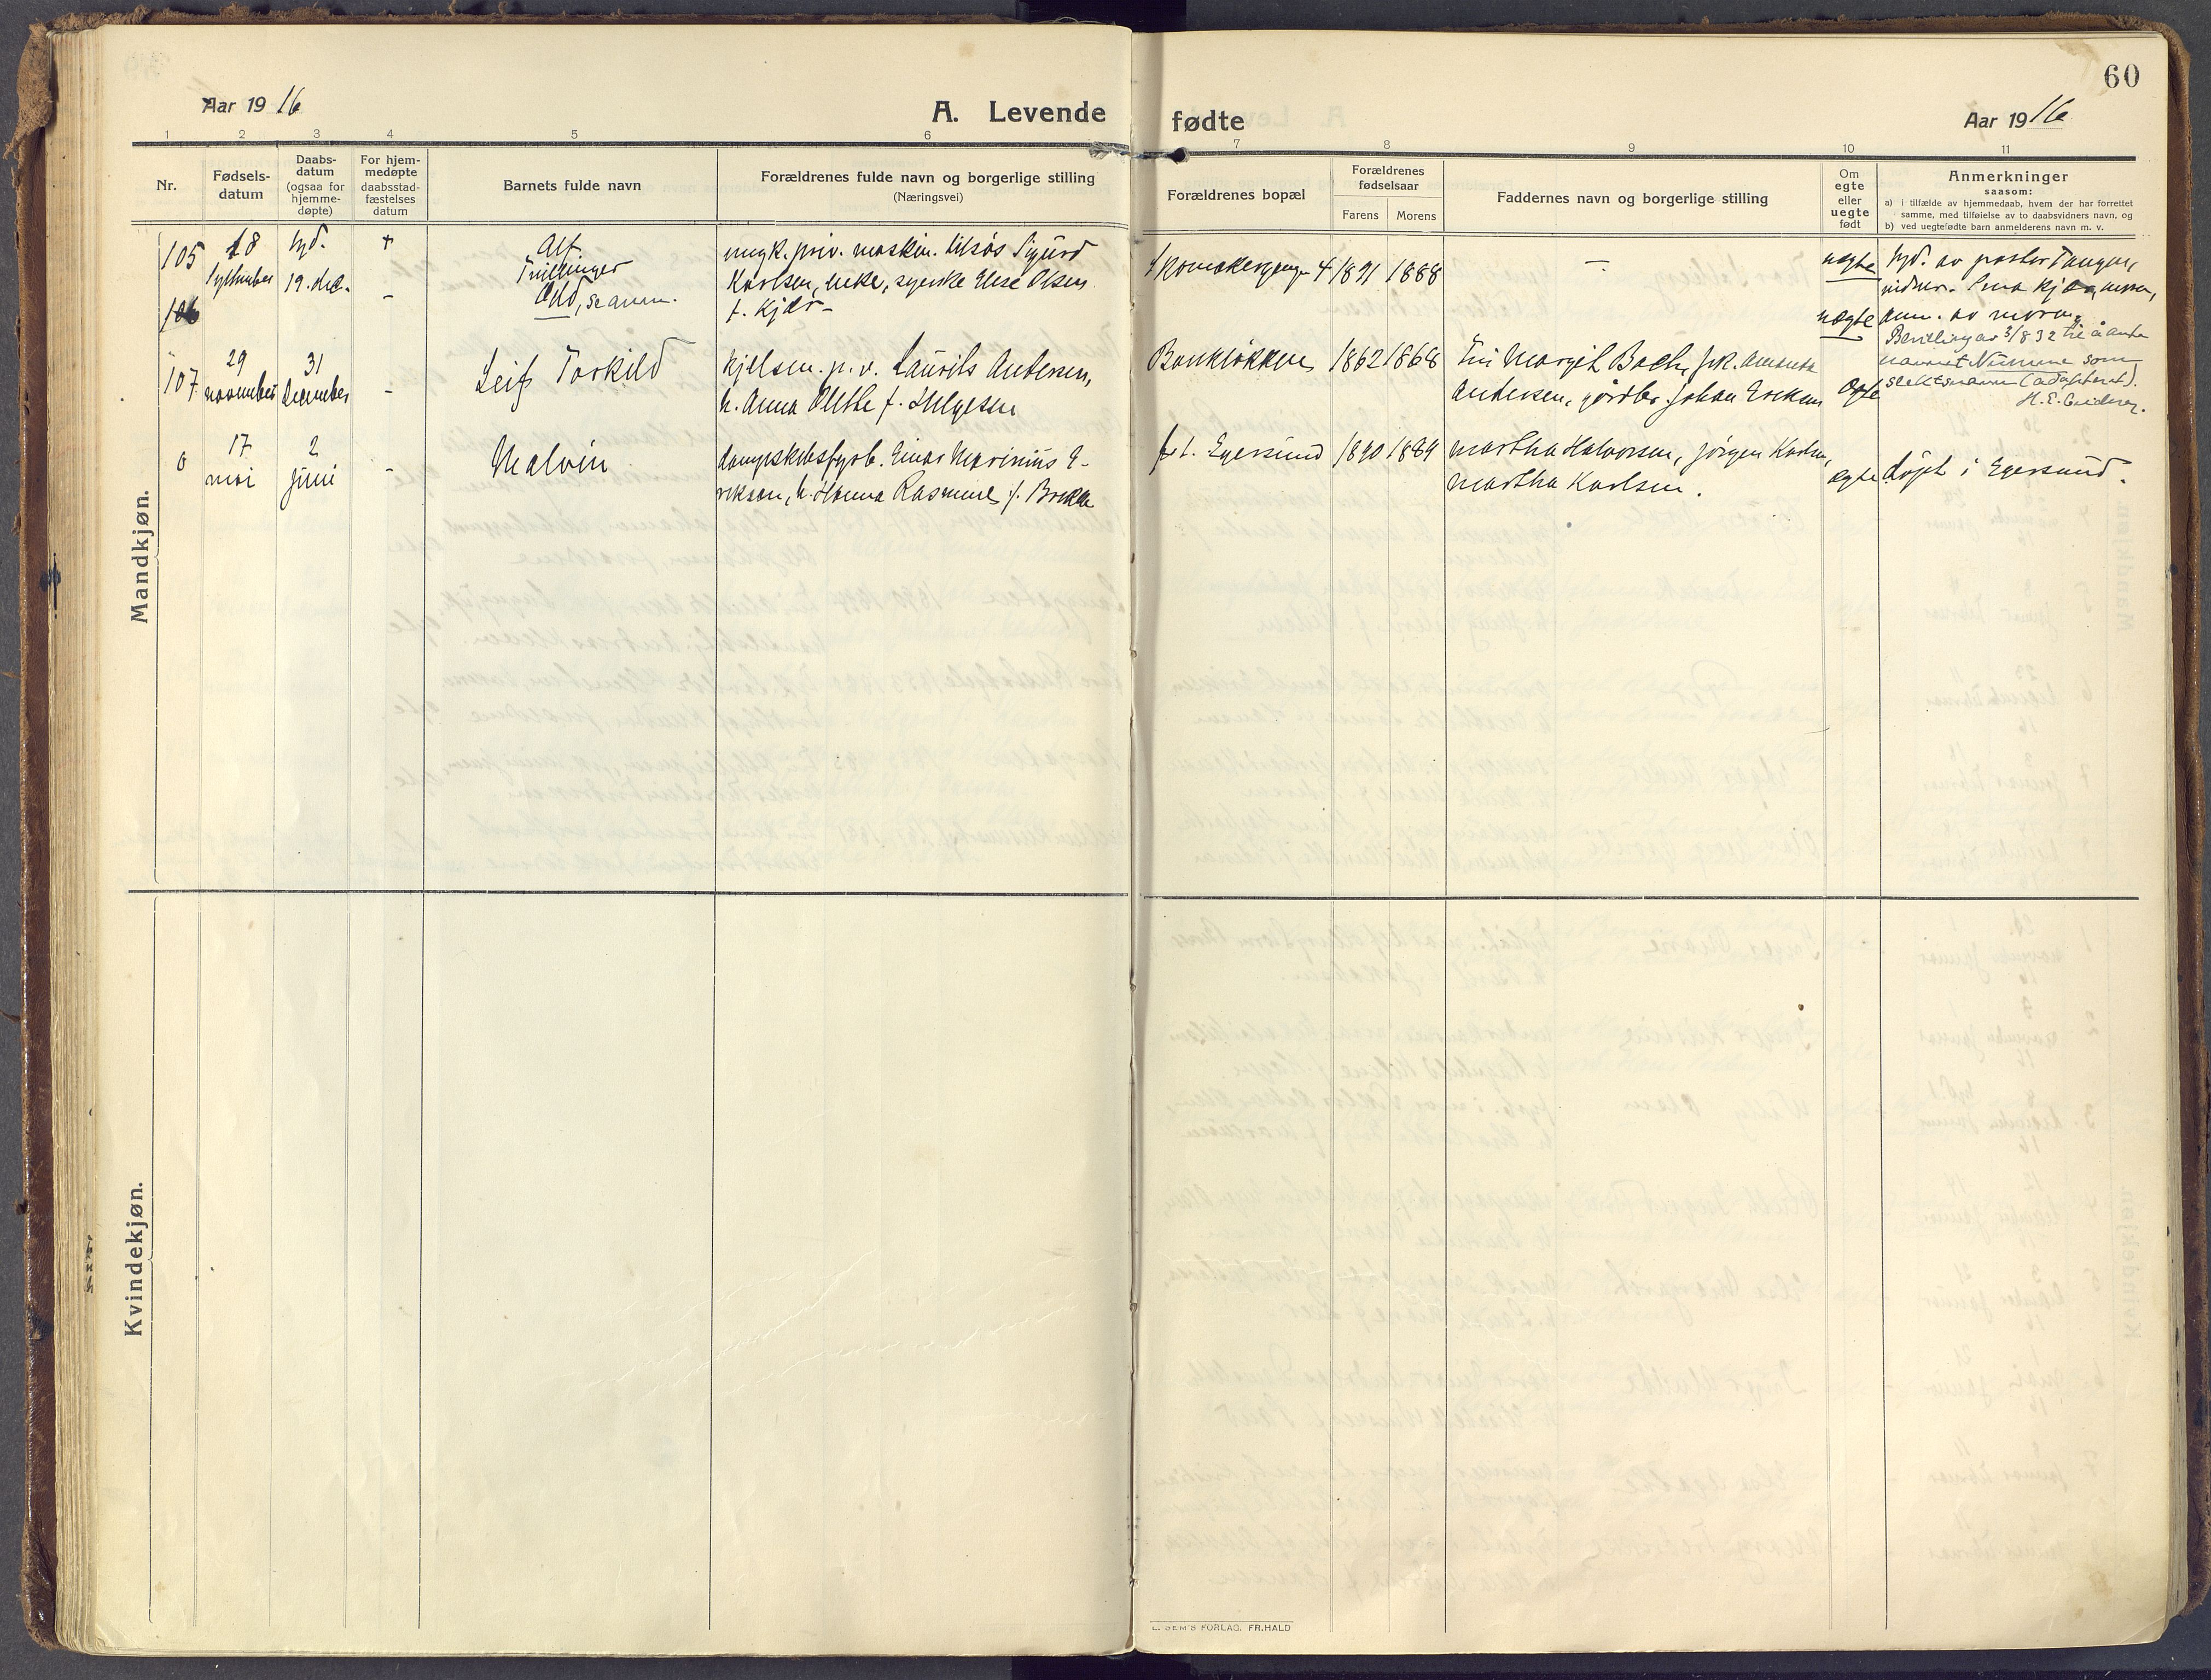 60
Aar 1916
A. Levende fødte
Aar 1916
1 2 3 4 5 6 7 8 9 10 11
Nr.
Fødsels-
datum
Daabs-
datum
(ogsaa for
hjemme-
døpte)
For hjem-
medøpte
daabsstad-
fæstelses
datum
Barnets fulde navn
Forældrenes fulde navn og borgerlige stilling
(Næringsvei)
Forældrenes bopæl
Forældrenes
fødselsaar
Farens Morens
Faddernes navn og borgerlige stilling
Om
egte
eller
uegte
født
Anmerkninger
saasom:
a) i tilfælde av hjemmedaab, hvem der har forrettet
samme, med tilføielse av to daabsvidners navn, og
b) ved uegtefødte barn anmelderens navn m. v.
Mandkjøn.
105
18
hjd.
19. dec.
+
Alf
Tvillinger
Odd, se anm.
ungk. priv. maskin. tilsøs Sigurd
Karlsen, enke, syerske Else Olsen
f. Kjær-
4 1891 1888
-
uegte
hjd. av pastor Tangen,
106
-
uegte
anm. av moren.
107
29
november
31
december
-
Leif Torkild
kjelsm. p. v. Laurits Andersen,
h. Anna Olethe f. Helgesen
Bankløkken 1862 1868
Fru Margit Bach, frk. Amanda
Andersen, gördler Johan Eriksen
egte
Bevilling av 3/8 32 til å anta
navnet Numme som
slektsnavn (adoptert).
0
17
mai
2
juni
-
Malvin
dampskibsfyrb. Einar Marinius E-
rikson, h. Hanna Rasmine f. Brekke
f. t. Egersund 1890 1889
Martha Halvorsen, Jörgen Karlsen,
Martha Karlsen.
egte
döpt i Egersund.
Kvindekjøn.
E. SEM'S FORLAG. FR.HALD